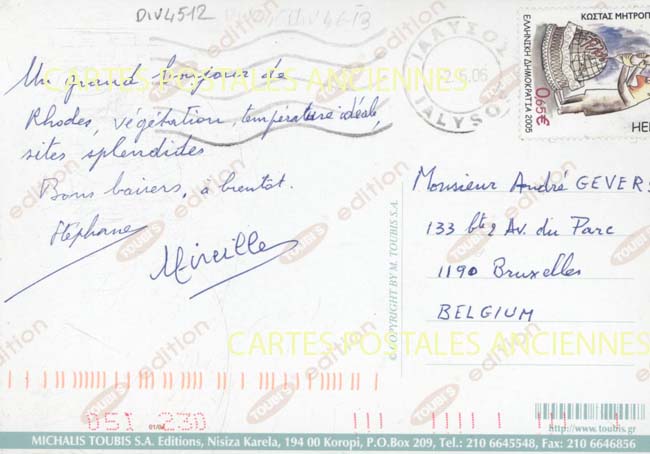 DIV4512
ΚΩΣΤΑΣ ΜΗΤΡΟΠ
ΕΛΛΗΝΙΚΗ ΔΗΜΟΚΡΑΤΙΑ 2005
0,65€
HEL
ΙΑΛΥΣΟΣ
IALYSO
Un grand bonjour de
Rhodes, végétation, température idéale,
sites splendides
Bons baisers, à bientôt.
Stéphane
Mireille
Monsieur André GEVERS
133 bte 2 Av. du Parc
1190 Bruxelles
BELGIUM
© COPYRIGHT BY M. TOUBIS S.A.
CARTES POSTALES ANCIENNES
CARTES POSTALES ANCIENNES
TOUBI'S edition
051 230
http://www.toubis.gr
MICHALIS TOUBIS S.A. Editions, Nisiza Karela, 194 00 Koropi, P.O.Box 209, Tel.: 210 6645548, Fax: 210 6646856